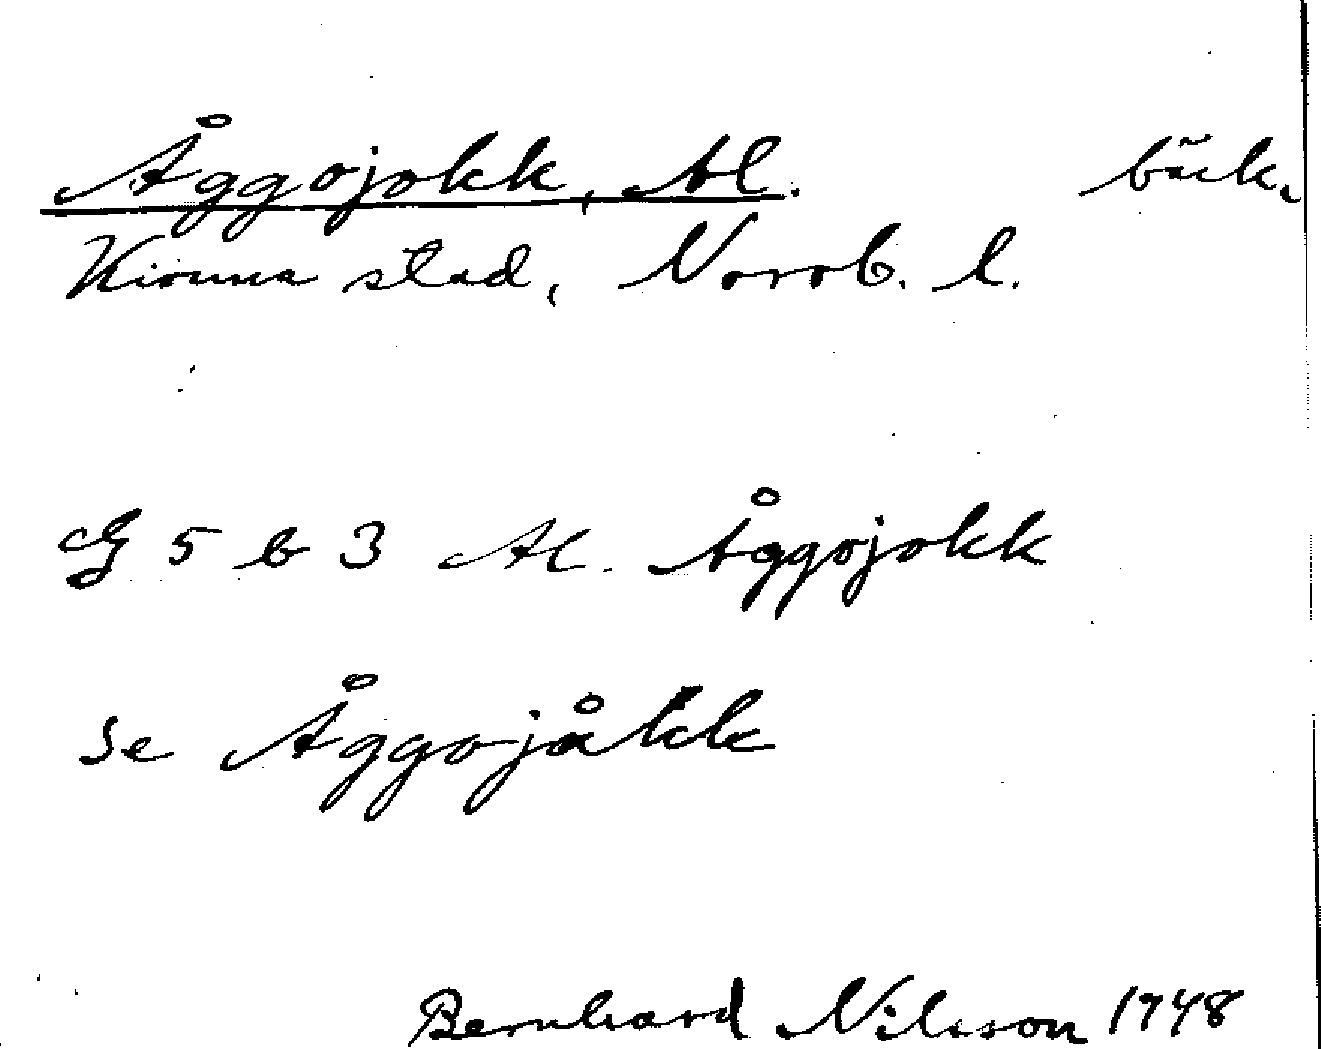 Åggojokk, Al. bäck.
Kiruna stad, Norrb. l.
G 5 b 3 Al. Åggojokk
Se Åggojåkk
Bernhard Nilsson 1948